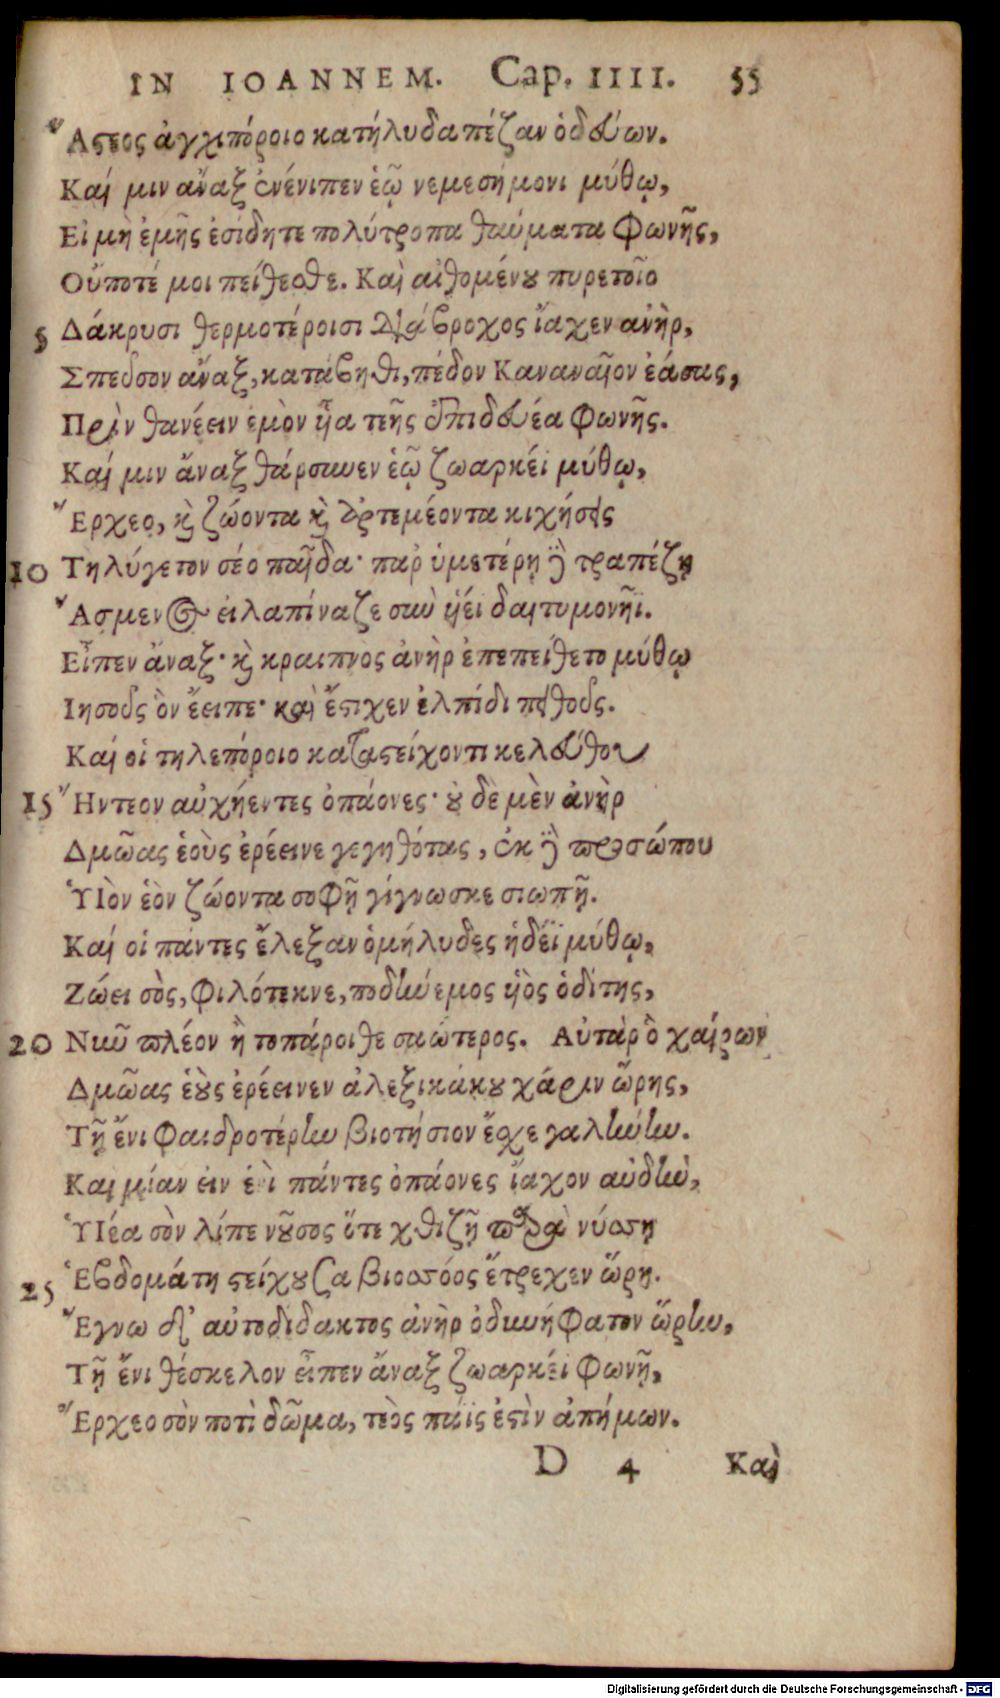 IN IOANNEM. Cap. IIII. 55
Ἄστεος ἀγχιπόροιο κατήλυδα πέζαν ὁδεύων.
Καί μιν ἄναξ ἐνένιπεν ἑῷ νεμεσήμονι μύθῳ,
Εἰ μὴ ἐμῆς ἐσίδητε πολύτροπα θαύματα φωνῆς,
Οὔποτέ μοι πείθεσθε. Καὶ αἰθομένου πυρετοῖο
5 Δάκρυσι θερμοτέροισι διάβροχος ἴαχεν ἀνὴρ,
Σπεῦσον ἄναξ, κατάβηθι, πέδον Καναναῖον ἐάσας,
Πρὶν θανέειν ἐμὸν ἧα τεῆς ἐπιδευέα φωνῆς.
Καί μιν ἄναξ θάρσωεν ἑῷ ζωαρκέϊ μύθῳ,
Ἔρχεο, καὶ ζώοντα καὶ ἀρτεμέοντα κιχήσεις
10 Τηλύγετον σέο παῖδα· παρ᾽ ὑμετέρῃ δὲ τραπέζῃ
Ἄσμενος εἰλαπίναζε σὺν ἡέϊ δαιτυμονῆϊ.
Εἶπεν ἄναξ· καὶ κραιπνὸς ἀνὴρ ἐπεπείθετο μύθῳ
Ἰησοῦς ὃν ἔειπε· καὶ ἔστιχεν ἐλπίδι πειθοῦς.
Καί οἱ τηλεπόροιο καταστείχοντι κελεύθου
15 Ἤντεον αὐχήεντες ὀπάονες· οὐδὲ μὲν ἀνὴρ
Δμῶας ἑοὺς ἐρέεινε γεγηθότας, ἐκ δὲ προσώπου
Ὑἱὸν ἑὸν ζώοντα σοφῇ γίγνωσκε σιωπῇ.
Καί οἱ πάντες ἔλεξαν ὁμήλυδες ἡδέϊ μύθῳ,
Ζώει σὸς, φιλότεκνε, ποδήνεμος ἡὸς ὁδίτης,
20 Νῦν πλέον ἢ τοπάροιθε σαώτερος. Αὐτὰρ ὃ χαίρων
Δμῶας ἑοὺς ἐρέεινεν ἀλεξικάκου χάριν ὥρης,
Τῇ ἔνι φαιδροτέρην βιοτήσιον ἔσχε γαλήνην.
Καὶ μίαν εἰν ἑνὶ πάντες ὀπάονες ἴαχον αὐδὴν,
Ὑἱέα σὸν λίπε νοῦσος ὅτε χθιζῇ παρὰ νύσσῃ
25 Ἑβδομάτη στείχουσα βιοσσόος ἔτρεχεν ὥρη.
Ἔγνω δ᾽ αὐτοδίδακτος ἀνὴρ ὀδυνήφατον ὥρην,
Τῇ ἔνι θέσκελον εἶπεν ἄναξ ζωαρκέϊ φωνῇ,
Ἔρχεο σὸν ποτὶ δῶμα, τεὸς πάϊς ἐστὶν ἀπήμων.
D 4 Καὶ
Digitalisierung gefördert durch die Deutsche Forschungsgemeinschaft - DFG